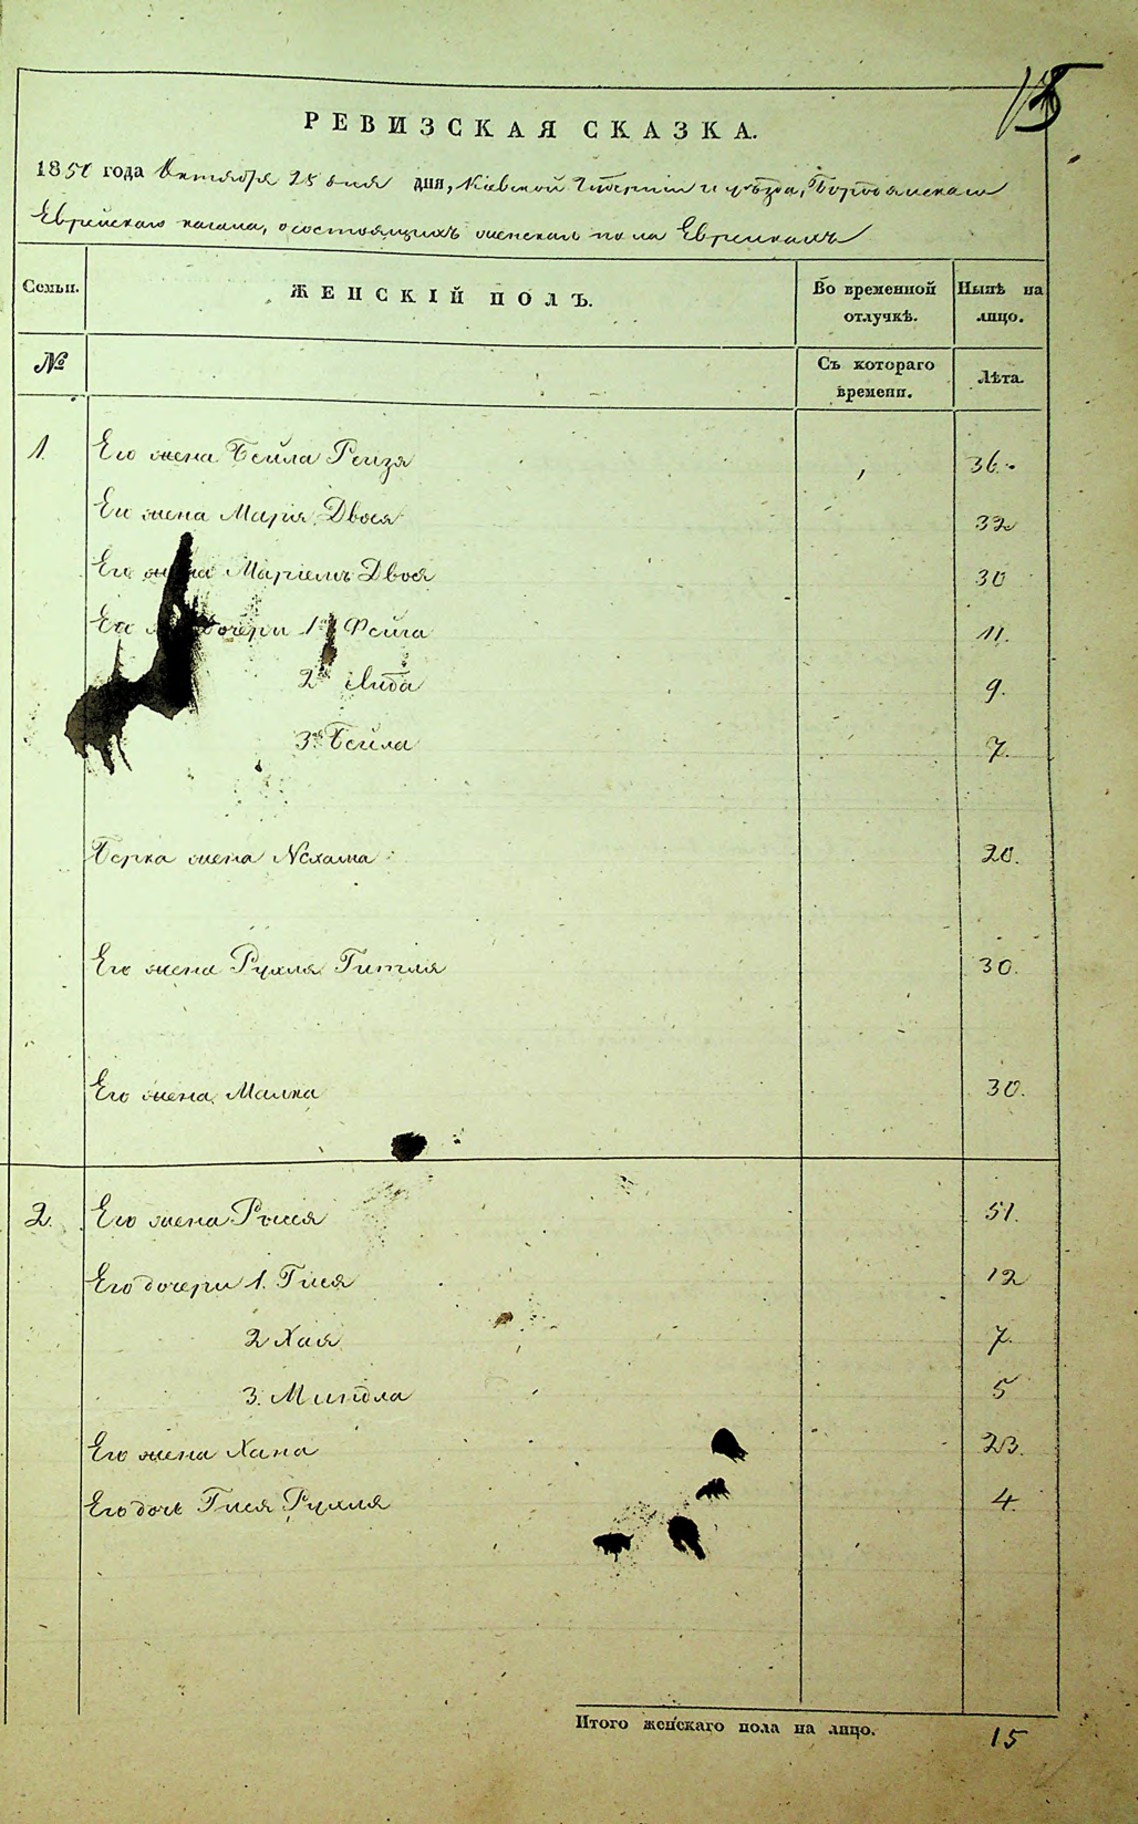 15
РЕВИЗСКАЯ СКАЗКА.
1850 года Октября 25 дня дня, Кіевской Губерніи и уѣзда, Бородянскаго
Еврейскаго кагала, о состоящихъ женскаго пола Еврейкахъ
Семьи. ЖЕНСКІЙ ПОЛЪ. Во временной отлучкѣ. Нынѣ на лицо.
№ Съ котораго времени. Лѣта.
1. Его жена Бейла Рейзя 36.
Его жена Марія Двося 32
Его жена Маріемъ Двося 30
Его дочери 1я Фейга 11.
2я Либа 9.
3я Бейла 7.
Берка жена Нехама 20.
Его жена Рухля Гитля 30.
Его жена Малка 30.
2. Его жена Рыся 51.
Его дочери 1. Гися 12
2 Хая 7.
3. Миндла 5
Его жена Хана 23.
Его дочь Гися Рухля 4.
Итого женскаго пола на лицо. 15